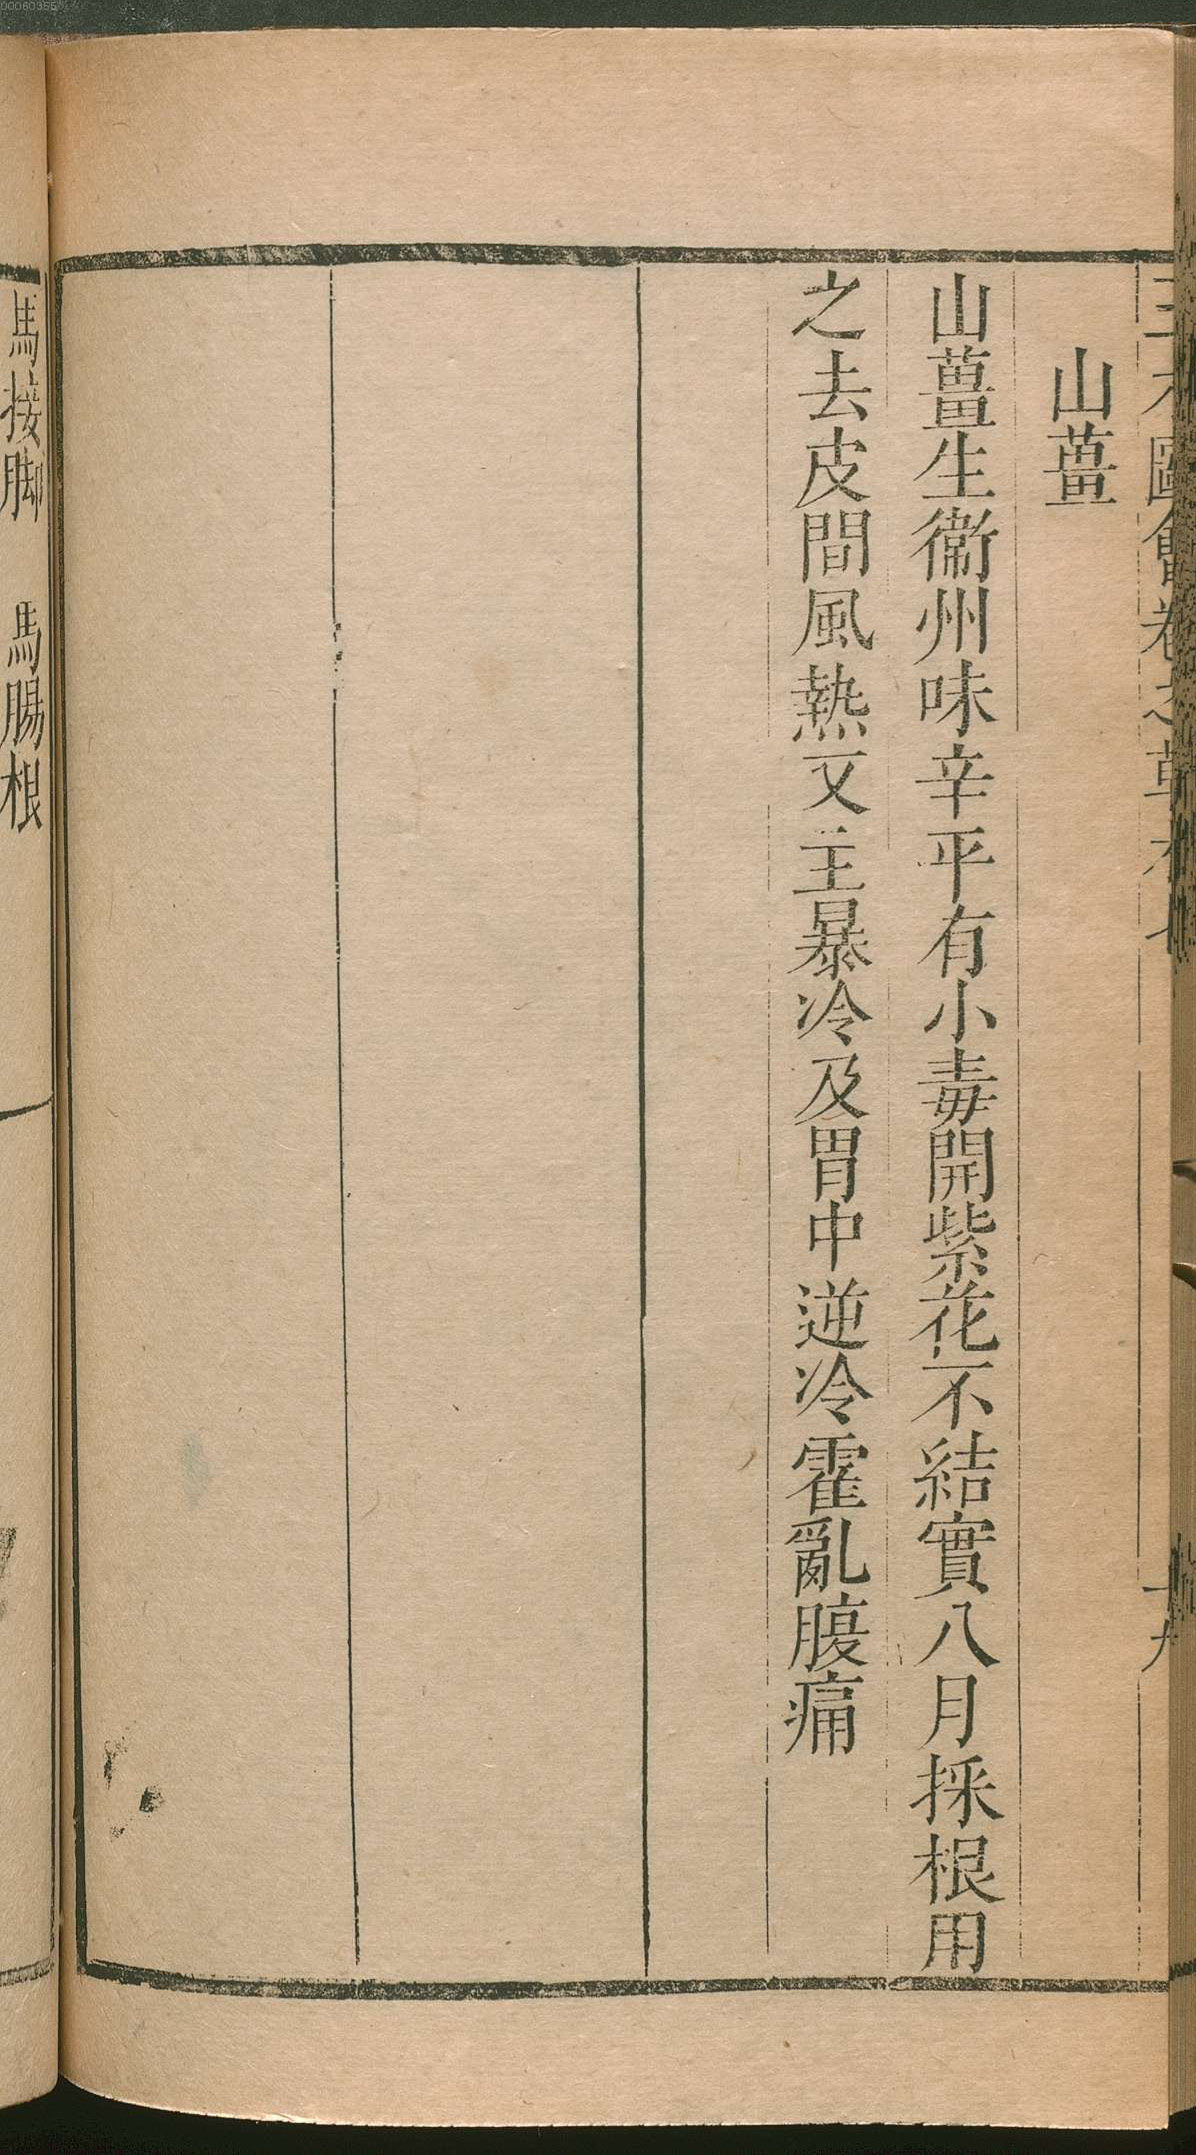 三才圖會卷之草木七
十九
山薑
山薑生衞州味辛平有小毒開紫花不結實八月採根用
之去皮間風熱又主暴冷及胃中逆冷霍亂腹痛
馬接脚　馬腸根
00060355